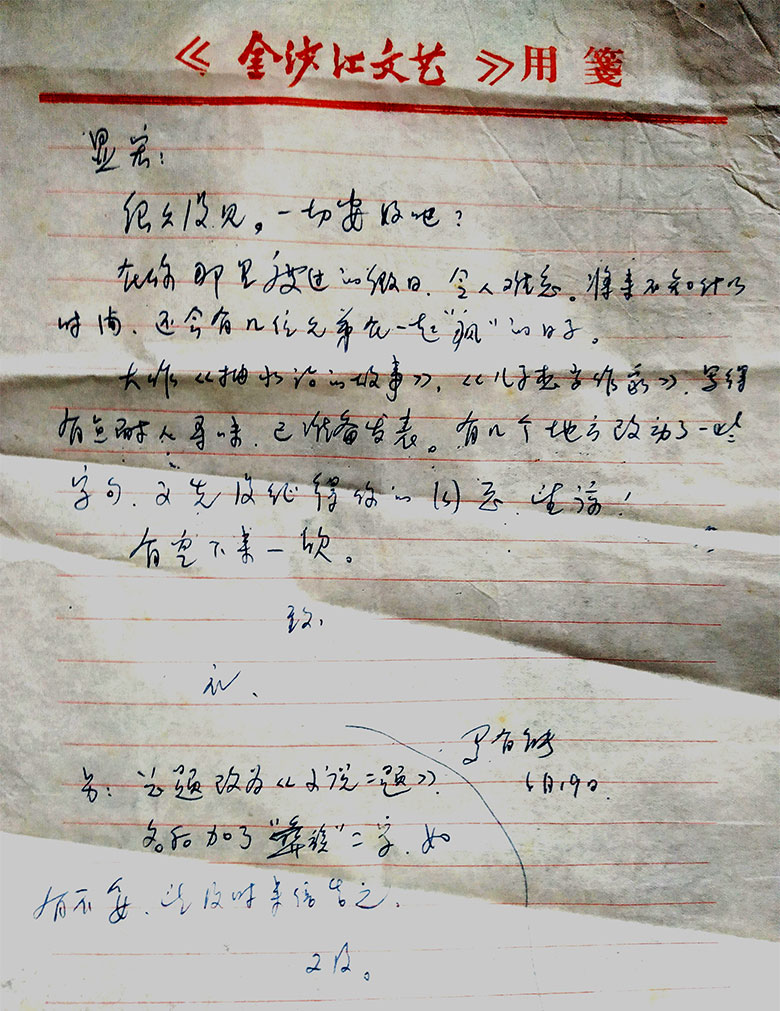 《金沙江文艺》用笺
显宏：
很久没见。一切安好吧？
在你那里度过的几日，令人难忘。将来不知什么
时间，还会有几位兄弟在一起“疯”的日子。
大作《抽水站的故事》，《儿子想当作家》，写得
有点耐人寻味，已准备发表。有几个地方改动了一些
字句，又先没征得你的同意，望谅！
有空下来一叙。
致
礼
6月19日
另：总题改为《小说二题》。
名后加了“彝族”二字，如
有不妥，望及时来信告之。
又及。